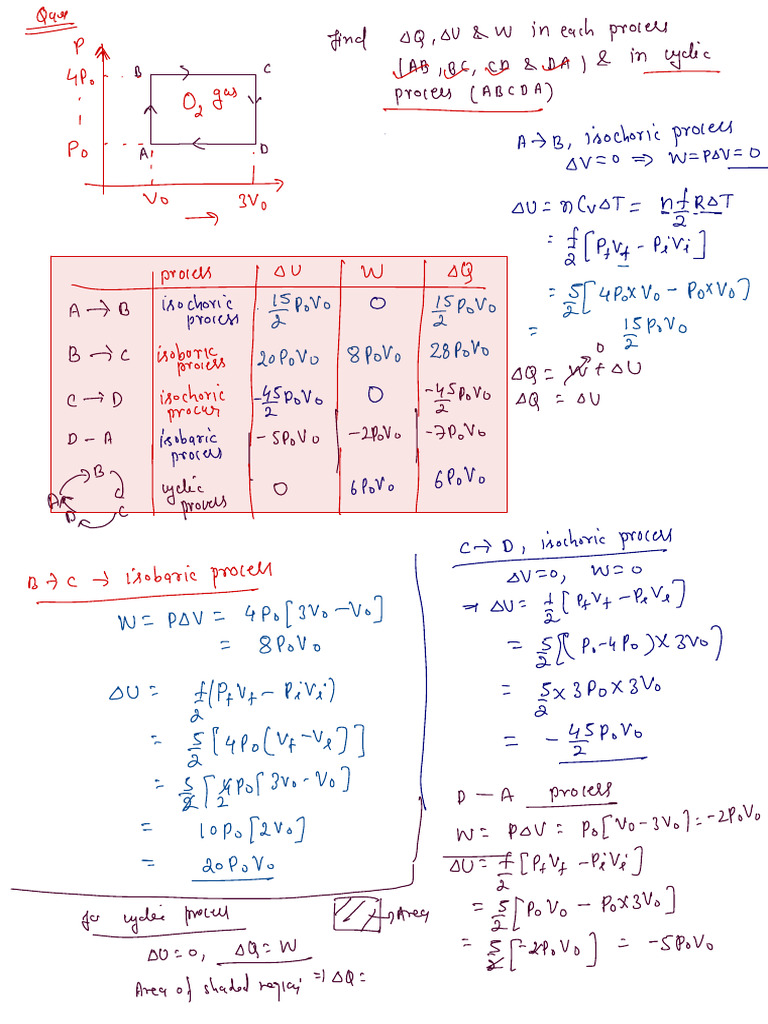 Ques
find ΔQ, ΔU & W in each process
(AB, BC, CD & DA) & in cyclic
process (ABCDA)
P
4P₀
P₀
B
C
O₂ gas
A
D
V₀
3V₀
A→B, isochoric process
ΔV=0 ⇒ W=PΔV=0
ΔU = nCvΔT = n f/2 RΔT
= f/2 [PfVf - PiVi]
= 5/2 [4P₀×V₀ - P₀×V₀]
= 15/2 P₀V₀
ΔQ = W⁰ + ΔU
ΔQ = ΔU
process ΔU W ΔQ
A→B isochoric process 15/2 P₀V₀ 0 15/2 P₀V₀
B→C isobaric process 20P₀V₀ 8P₀V₀ 28P₀V₀
C→D isochoric process -45/2 P₀V₀ 0 -45/2 P₀V₀
D-A isobaric process -5P₀V₀ -2P₀V₀ -7P₀V₀
A B C D cyclic process 0 6P₀V₀ 6P₀V₀
B→C → isobaric process
W = PΔV = 4P₀[3V₀-V₀]
= 8P₀V₀
ΔU = f/2 (PfVf - PiVi)
= 5/2 [4P₀(Vf-Vi)]
= 5/2 [4P₀[3V₀-V₀]
2
= 10P₀[2V₀]
= 20P₀V₀
C→D, isochoric process
ΔV=0, W=0
⇒ ΔU = f/2 [PfVf - PiVi]
= 5/2 [(P₀-4P₀)×3V₀]
= 5/2 × 3P₀×3V₀
= -45/2 P₀V₀
D-A process
W = PΔV = P₀[V₀-3V₀] = -2P₀V₀
ΔU = f/2 [PfVf - PiVi]
= 5/2 [P₀V₀ - P₀×3V₀]
= 5/2 [-2P₀V₀] = -5P₀V₀
for cyclic process
→Area
ΔU=0, ΔQ=W
Area of shaded region ⇒ ΔQ=